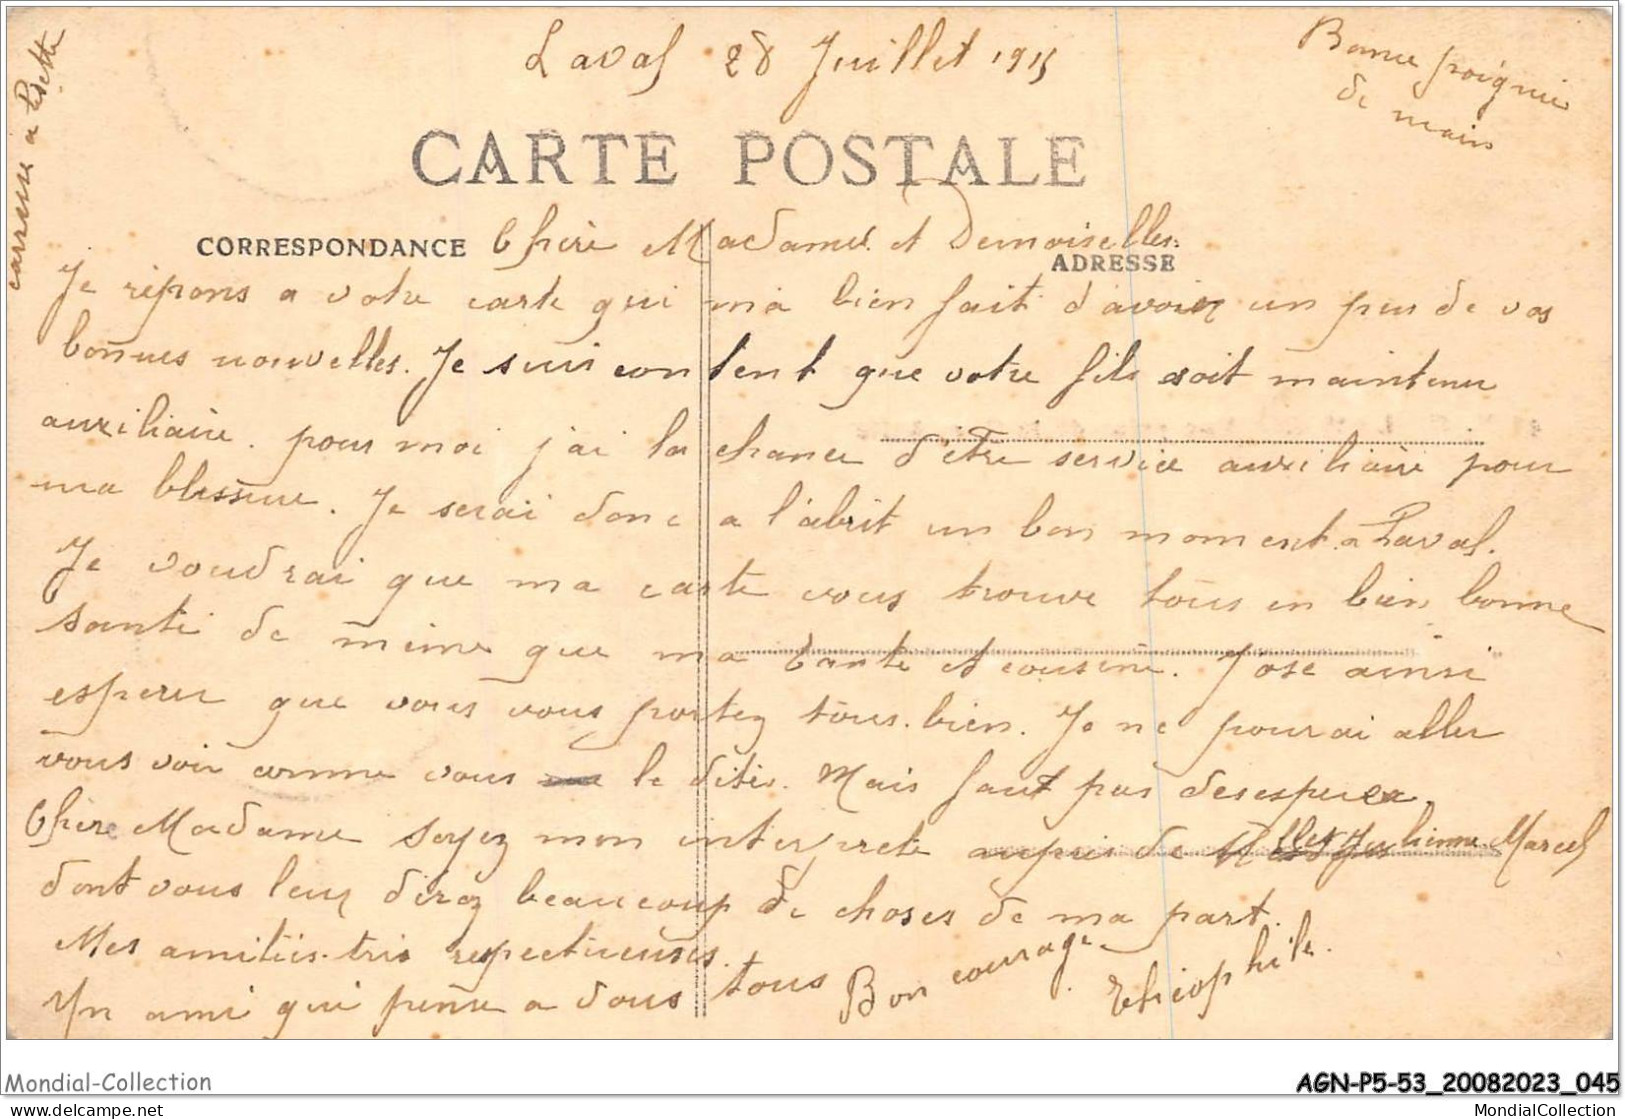 Laval 28 Juillet 1915
Bonne poignie
de main
carresse a
CARTE POSTALE
CORRESPONDANCE
ADRESSE
Chère Madame et Demoiselles.
Je répons a votre carte qui m'a bien fait d'avoir un peu de vos
bonnes nouvelles. Je suis content que votre fils soit maintenu
auxiliaire. pour moi j'ai la chance d'être service auxiliaire pour
ma blessure. Je serai donc a l'abrit un bon moment a Laval.
Je voudrai que ma carte vous trouve tous en bien bonne
santé de même que ma tante et cousine. J'ose ainsi
esperer que vous vous portez tous bien. Je ne pourai aller
vous voir comme vous le dites. Mais faut pas desesperer.
Chère Madame soyez mon interprete aupres de Mlles Julienne Marcel
dont vous leur direz beaucoup de choses de ma part.
Mes amitiés très repectueuses.
Un ami qui pense a vous tous Bon courage.
Théophile.
Mondial-Collection
AGN-P5-53_20082023_045
https://www.delcampe.net
MondialCollection.com